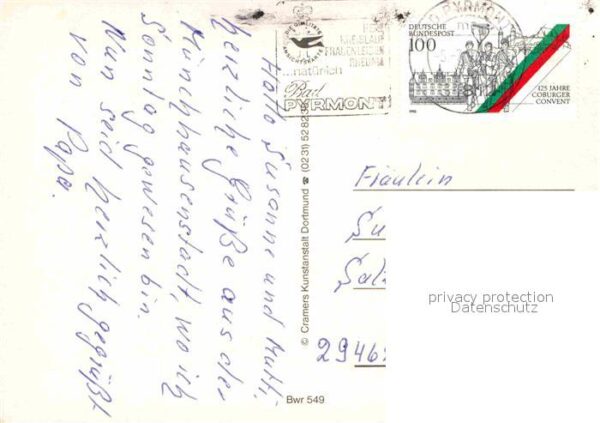 Hallo Susanne und Mutti,
herzliche Grüße aus der
Münchhausenstadt, wo ich
Sonntag gewesen bin.
Nun seid herzlich gegrüßt
von Papa.
© Cramers Kunstanstalt Dortmund ☎ (0231) 52 82 3
Bwr 549
DIE BELIEBTE
ANSICHTSKARTE
HERZ
KREISLAUF
FRAUENLEIDEN
RHEUMA
...natürlich
Bad
PYRMONT
PYRMONT
DEUTSCHE
BUNDESPOST
100
125 JAHRE
COBURGER
CONVENT
Fräulein
Su
Salz
2946
privacy protection
Datenschutz